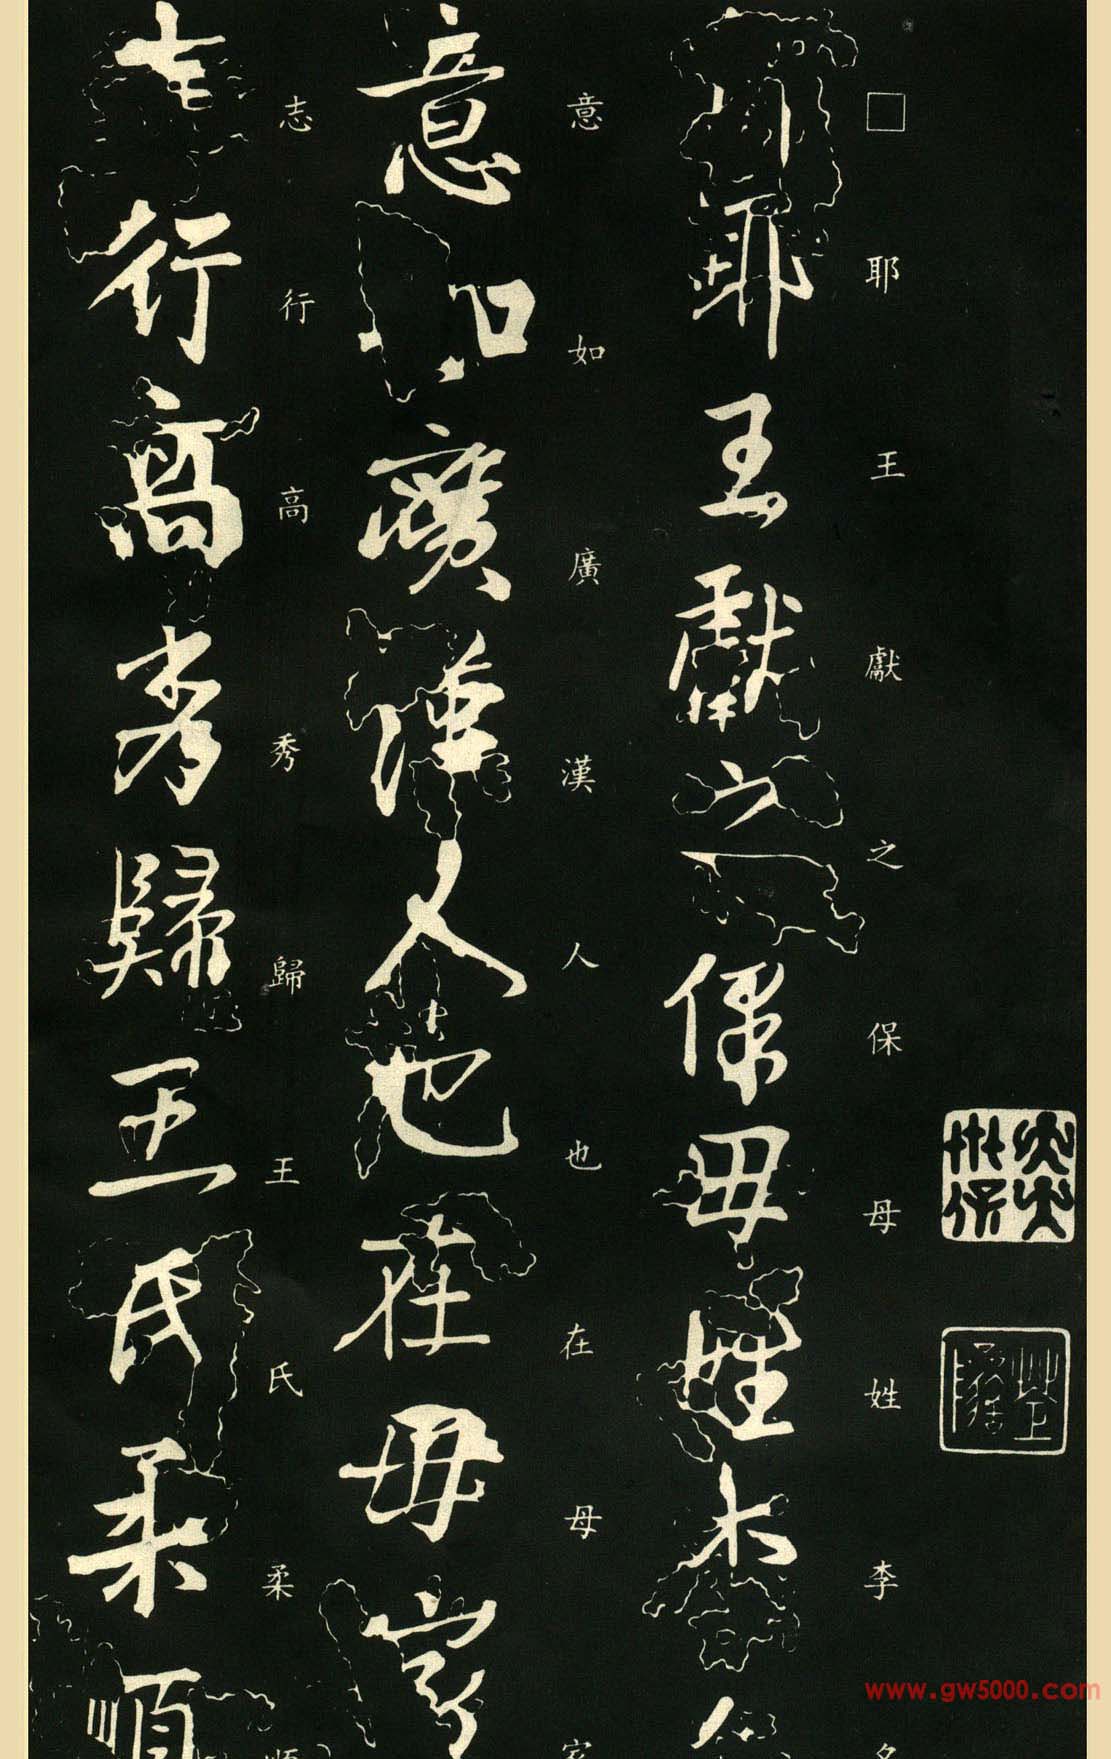 □耶王獻之保母姓李名
意如廣漢人也在母家
志行高秀歸王氏柔順
www.gw5000.com